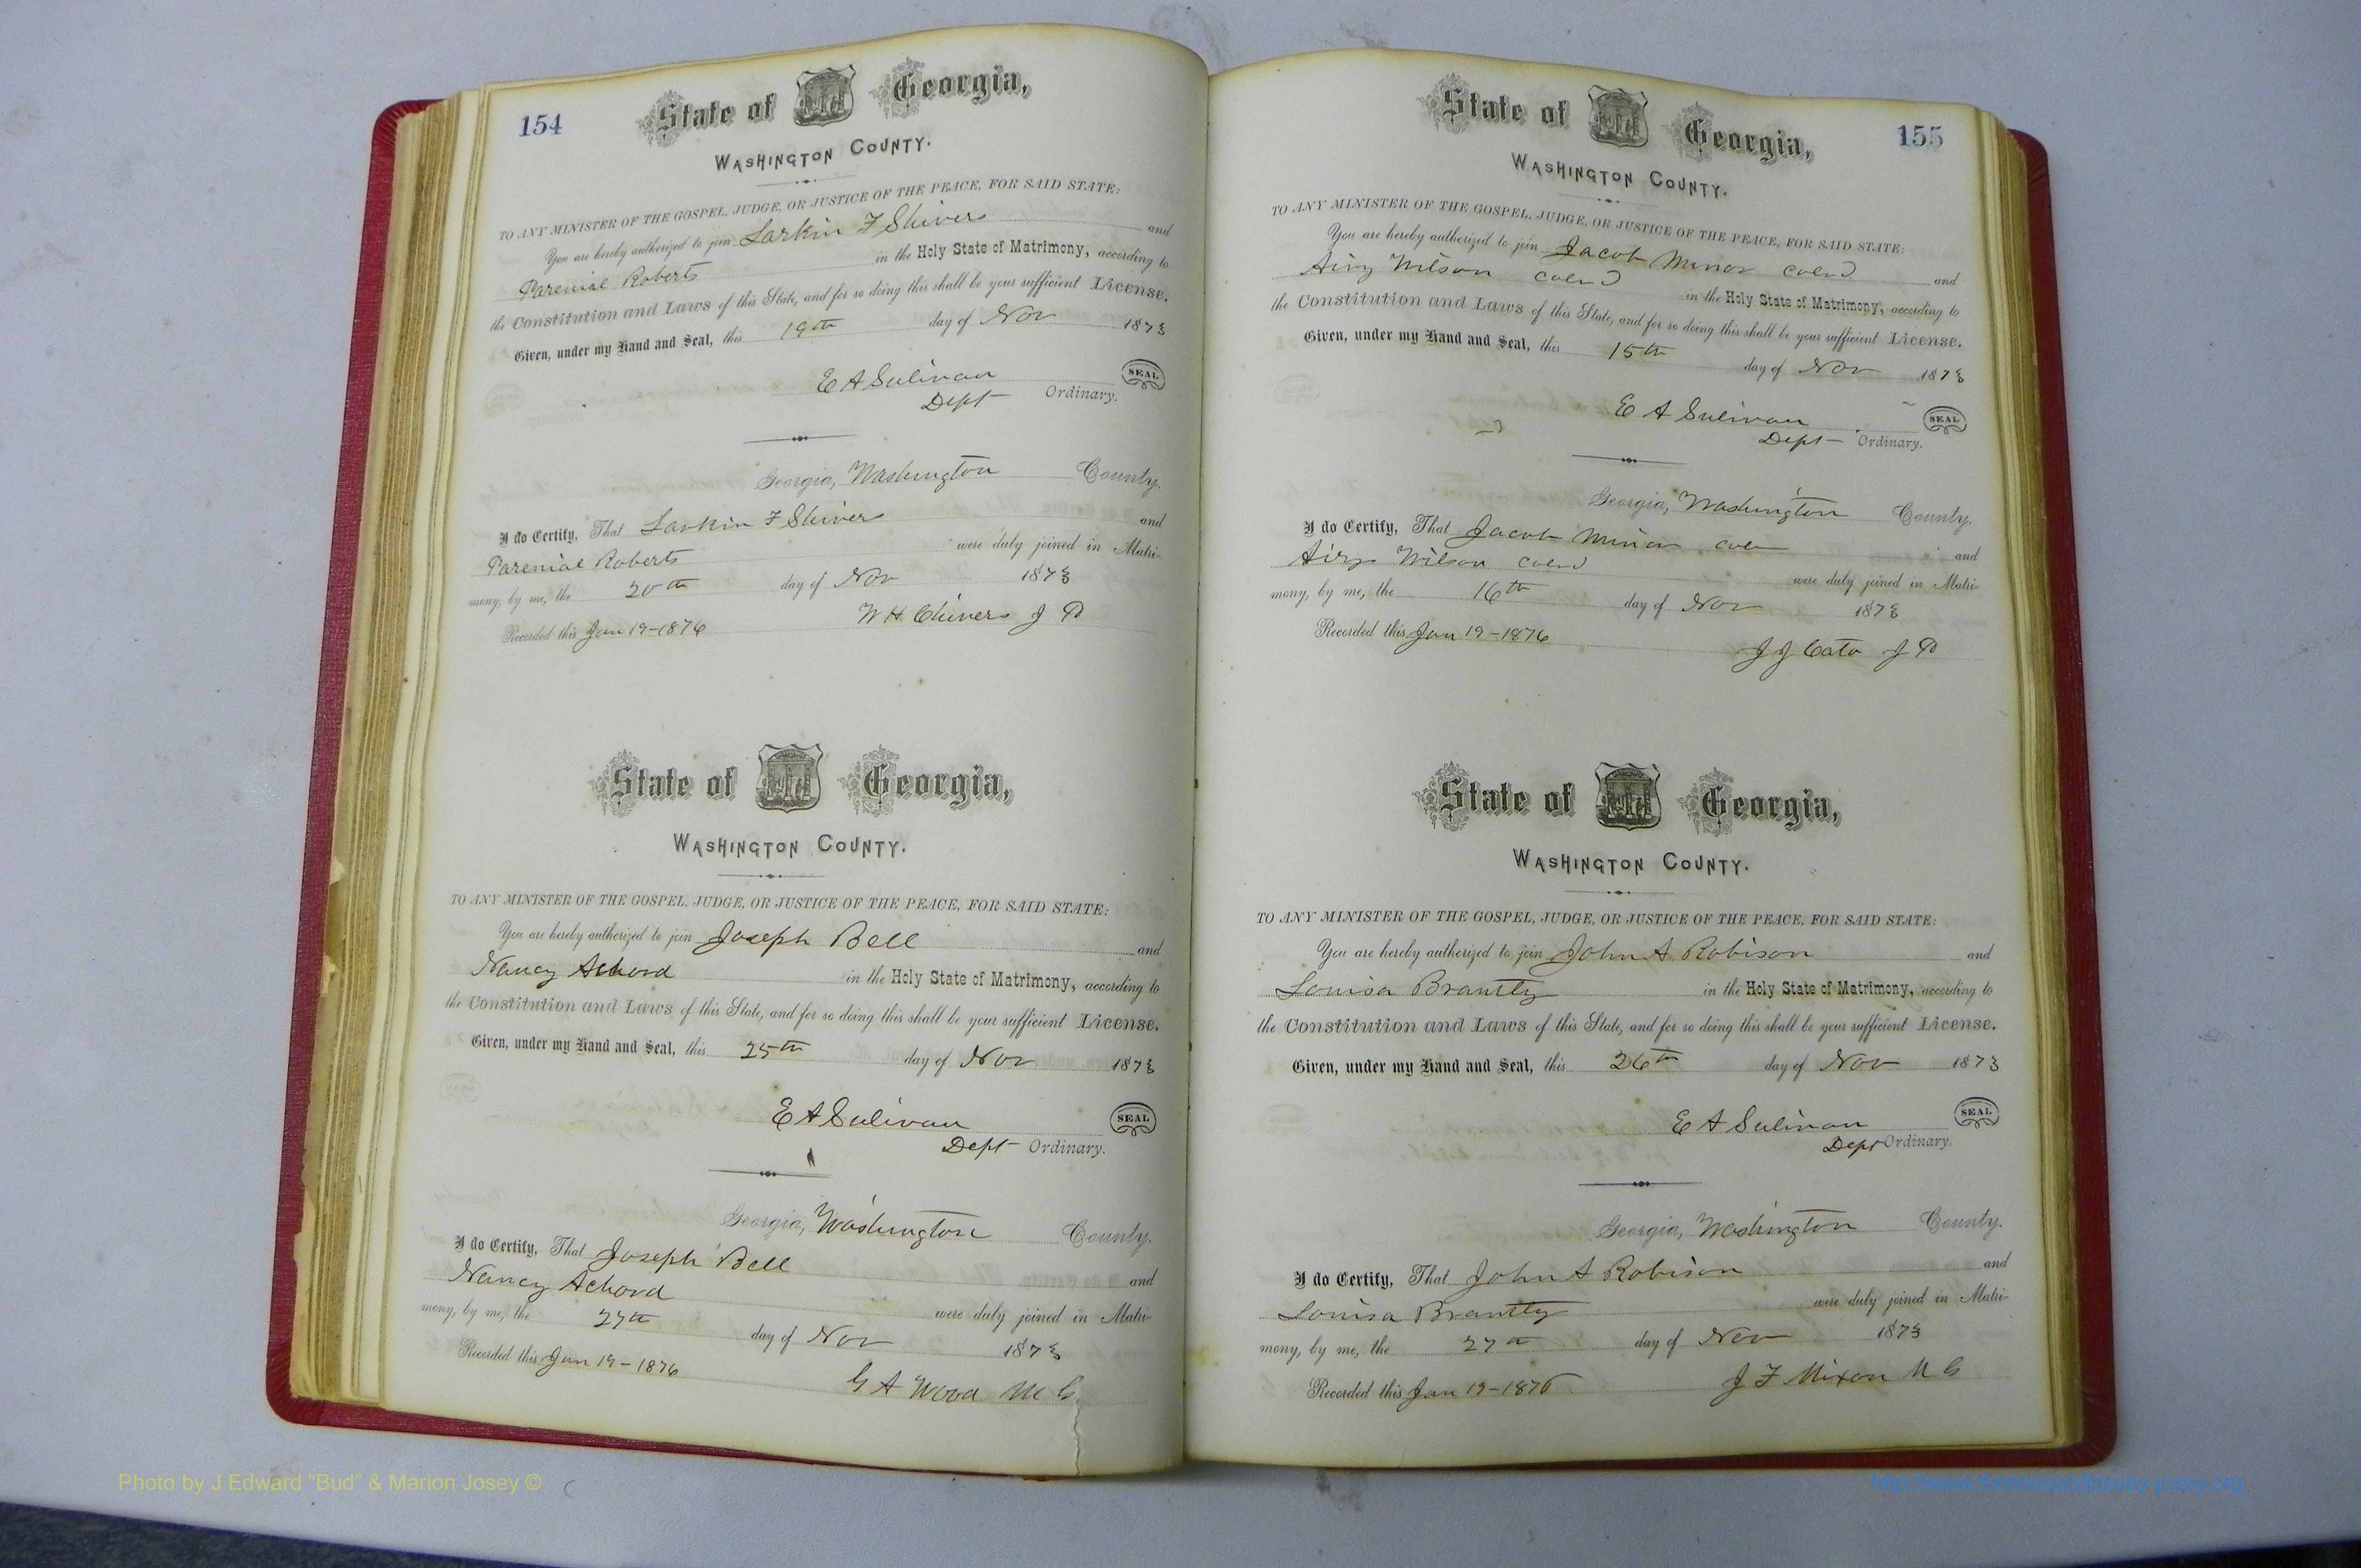 154
State of Georgia,
WASHINGTON COUNTY.
TO ANY MINISTER OF THE GOSPEL, JUDGE, OR JUSTICE OF THE PEACE, FOR SAID STATE:
You are hereby authorized to join Larkin F Shivers and
Parenial Roberts in the Holy State of Matrimony, according to
the Constitution and Laws of this State, and for so doing this shall be your sufficient License.
Given, under my Hand and Seal, this 19th day of Nov 1873
E A Sulivan SEAL
Dept Ordinary.
Georgia, Washington County.
I do Certify, That Larkin F Shivers and
Parenial Roberts were duly joined in Matri-
mony, by me, the 20th day of Nov 1873
Recorded this Jan 19-1876 W H Chivers J P
State of Georgia,
WASHINGTON COUNTY.
TO ANY MINISTER OF THE GOSPEL, JUDGE, OR JUSTICE OF THE PEACE, FOR SAID STATE:
You are hereby authorized to join Joseph Bell and
Nancy Achord in the Holy State of Matrimony, according to
the Constitution and Laws of this State, and for so doing this shall be your sufficient License.
Given, under my Hand and Seal, this 25th day of Nov 1873
E A Sulivan SEAL
Dept Ordinary.
Georgia, Washington County.
I do Certify, That Joseph Bell and
Nancy Achord were duly joined in Matri-
mony, by me, the 27th day of Nov 1873
Recorded this Jan 19-1876
G A Wood M G
155
State of Georgia,
WASHINGTON COUNTY.
TO ANY MINISTER OF THE GOSPEL, JUDGE, OR JUSTICE OF THE PEACE, FOR SAID STATE:
You are hereby authorized to join Jacob Minor cold and
Airy Wilson cold in the Holy State of Matrimony, according to
the Constitution and Laws of this State, and for so doing this shall be your sufficient License.
Given, under my Hand and Seal, this 15th day of Nov 1873
E A Sulivan SEAL
Dept Ordinary.
Georgia, Washington County.
I do Certify, That Jacob Minor col and
Airy Wilson cold were duly joined in Matri-
mony, by me, the 16th day of Nov 1873
Recorded this Jan 19-1876
J J Cato J P
State of Georgia,
WASHINGTON COUNTY.
TO ANY MINISTER OF THE GOSPEL, JUDGE, OR JUSTICE OF THE PEACE, FOR SAID STATE:
You are hereby authorized to join John A Robison and
Louisa Brantly in the Holy State of Matrimony, according to
the Constitution and Laws of this State, and for so doing this shall be your sufficient License.
Given, under my Hand and Seal, this 26th day of Nov 1873
E A Sulivan SEAL
Dept Ordinary.
Georgia, Washington County.
I do Certify, That John A Robison and
Louisa Brantly were duly joined in Matri-
mony, by me, the 27th day of Nov 1873
Recorded this Jan 19-1876 J F Mixon M G
Photo by J Edward "Bud" & Marion Josey ©